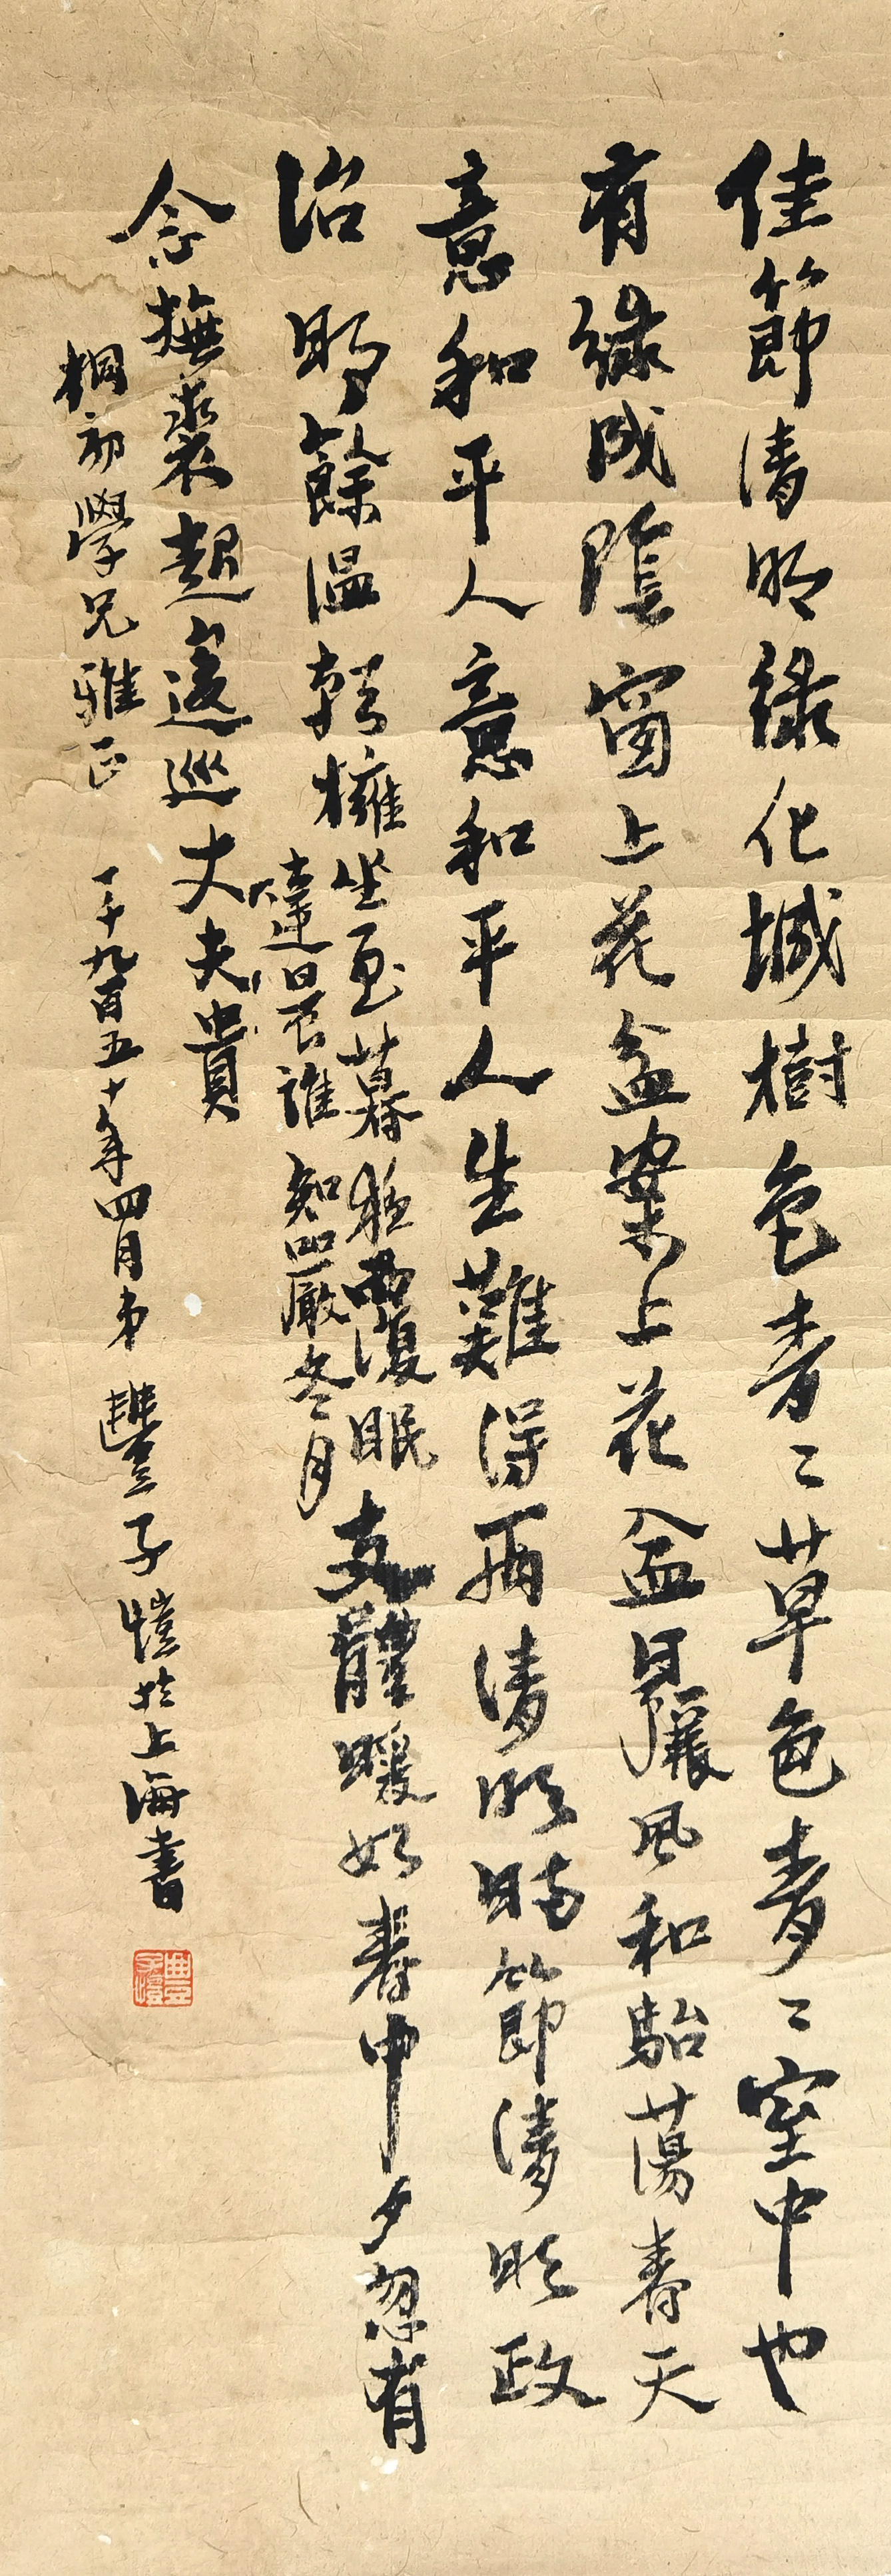 佳節清明綠化城樹色青〻草色青〻室中也
有綠成陰窗上花盆案上花盆日麗風和駘蕩春天
意和平人意和平人生難得兩清明時節清明政
治明餘溫朝擁坐至暮夜覆眠支體暖如春中夕忽有
達晨誰知嚴冬月
念撫裘起逡巡丈夫貴
桐初學兄雅正 一千九百五十年四月弟豐子愷於上海書
豐子愷